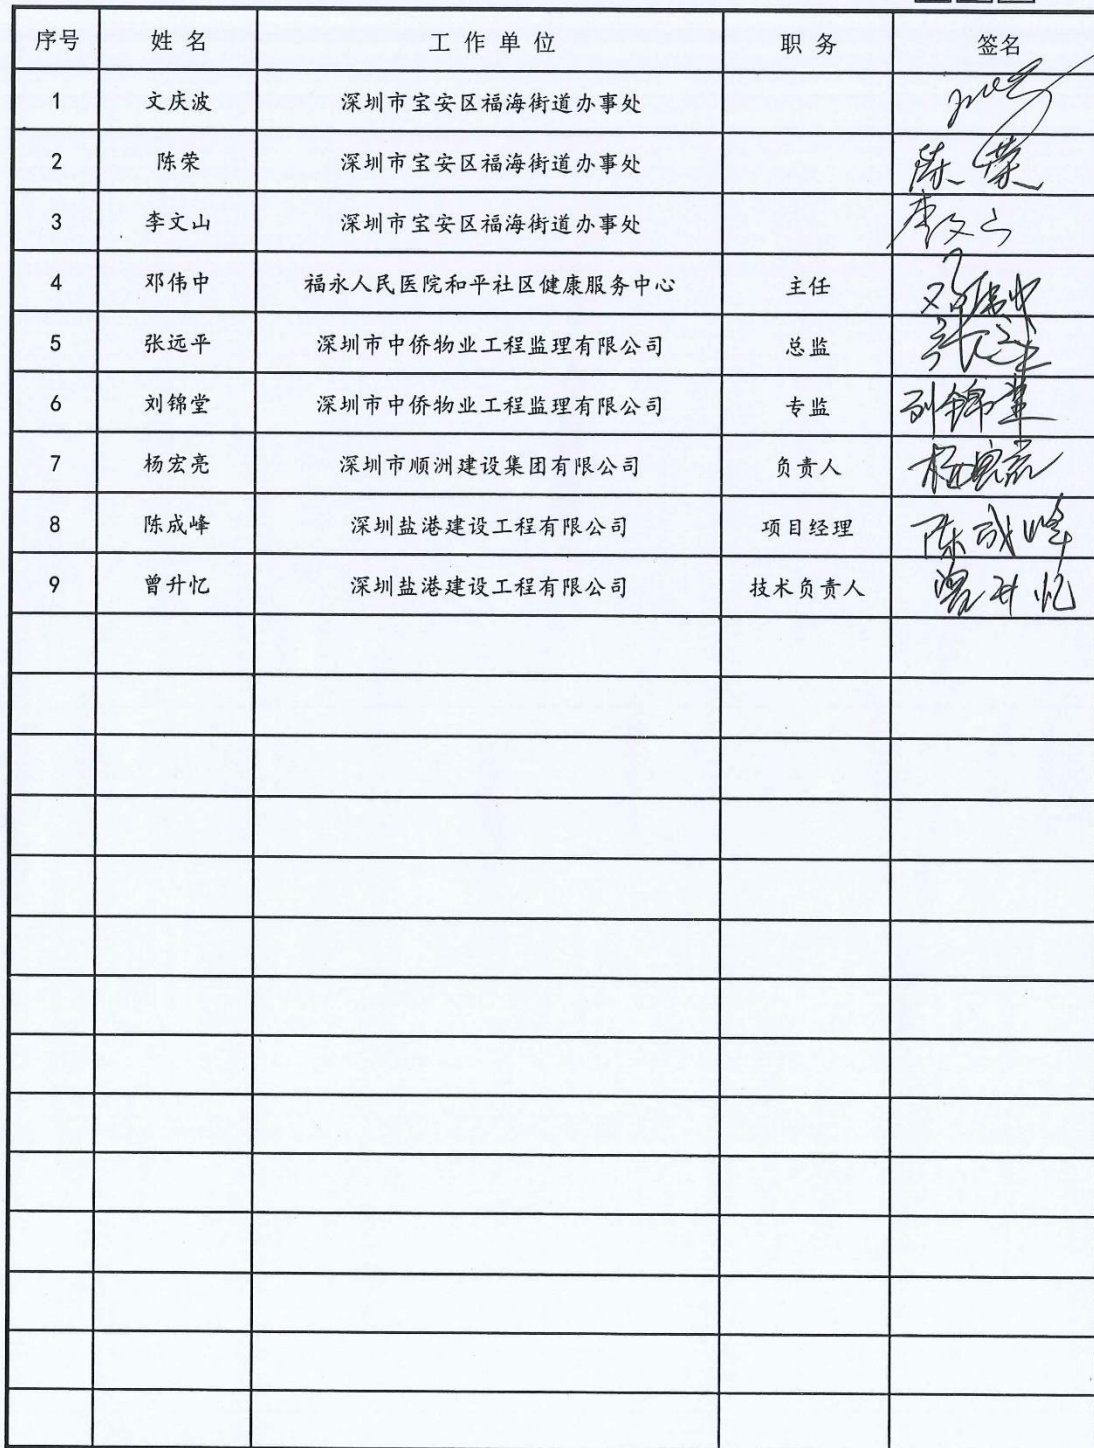 序号 姓名 工作单位 职务 签名
1 文庆波 深圳市宝安区福海街道办事处
2 陈荣 深圳市宝安区福海街道办事处 陈荣
3 李文山 深圳市宝安区福海街道办事处 李文山
4 邓伟中 福永人民医院和平社区健康服务中心 主任 邓伟中
5 张远平 深圳市中侨物业工程监理有限公司 总监 张远平
6 刘锦堂 深圳市中侨物业工程监理有限公司 专监 刘锦堂
7 杨宏亮 深圳市顺洲建设集团有限公司 负责人 杨宏亮
8 陈成峰 深圳盐港建设工程有限公司 项目经理 陈成峰
9 曾升忆 深圳盐港建设工程有限公司 技术负责人 曾升忆